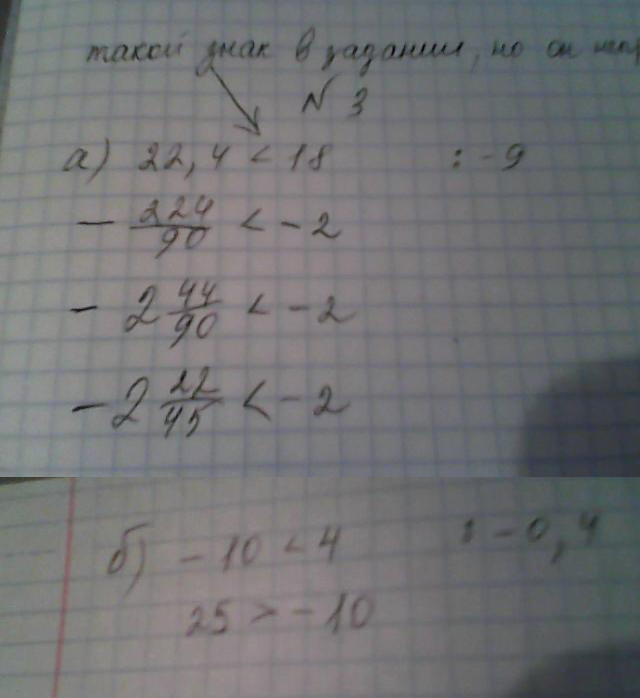 такой знак в задании, но он
№ 3
а) 22,4 < 18 : -9
- 224/90 < - 2
- 2 44/90 < - 2
- 2 22/45 < - 2
б) - 10 < 4 : - 0,4
25 > - 10